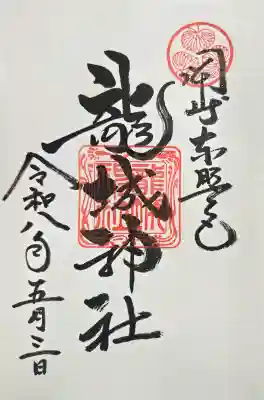 岡崎東照宮
龍城神社
令和八年五月三日